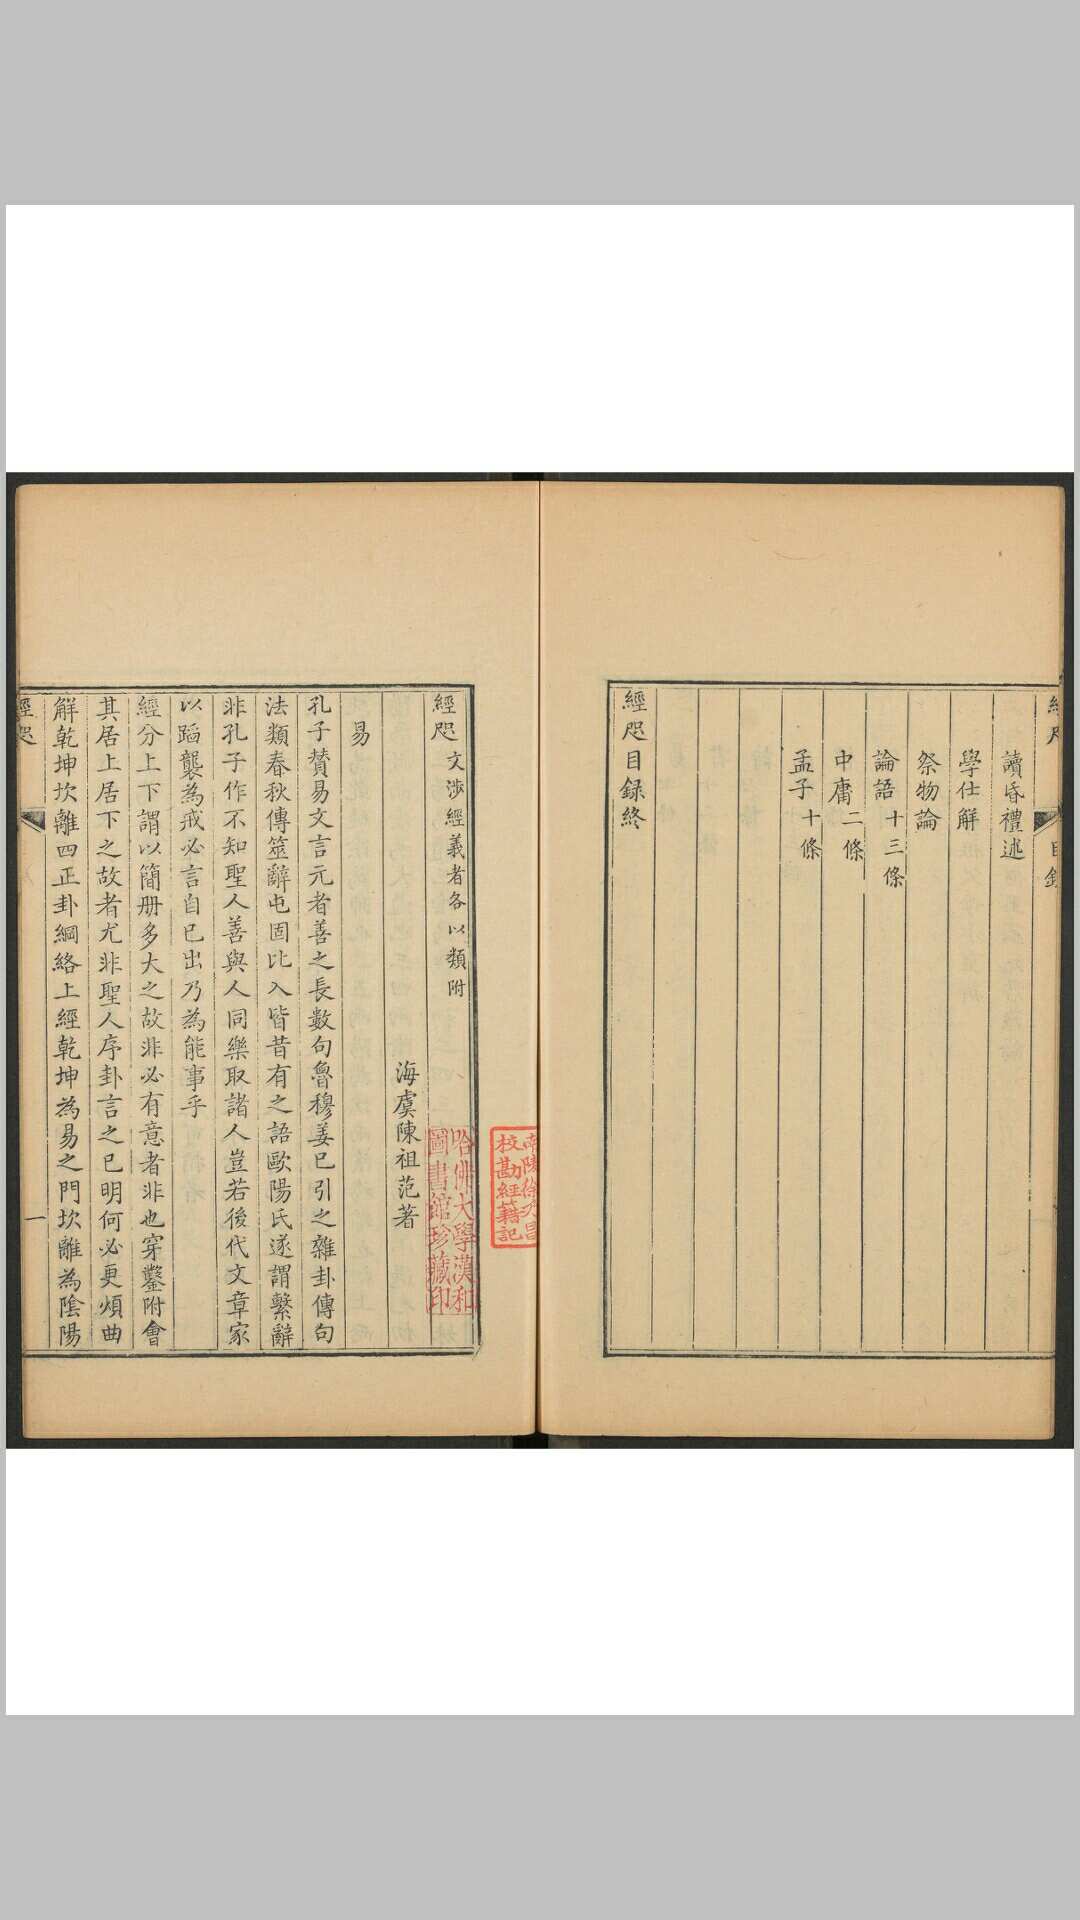 讀昏禮述
學仕解
祭物論
論語 十三條
中庸 二條
孟子 十條
經咫目録終
經咫 文涉經義者各以類附
海虞陳祖范著
易
孔子賛易文言元者善之長數句魯穆姜已引之雜卦傳句
法類春秋傳筮辭屯固比入皆昔有之語歐陽氏遂謂繫辭
非孔子作不知聖人善與人同樂取諸人豈若後代文章家
以蹈襲為戒必言自已出乃為能事乎
經分上下謂以簡册多大之故非必有意者非也穿鑿附會
其居上居下之故者尤非聖人序卦言之已明何必更煩曲
解乾坤坎離四正卦綱絡上經乾坤為易之門坎離為陰陽
經咫
一
哈佛大學漢和
圖書館珍藏印
南陵徐乃昌
校勘經籍記